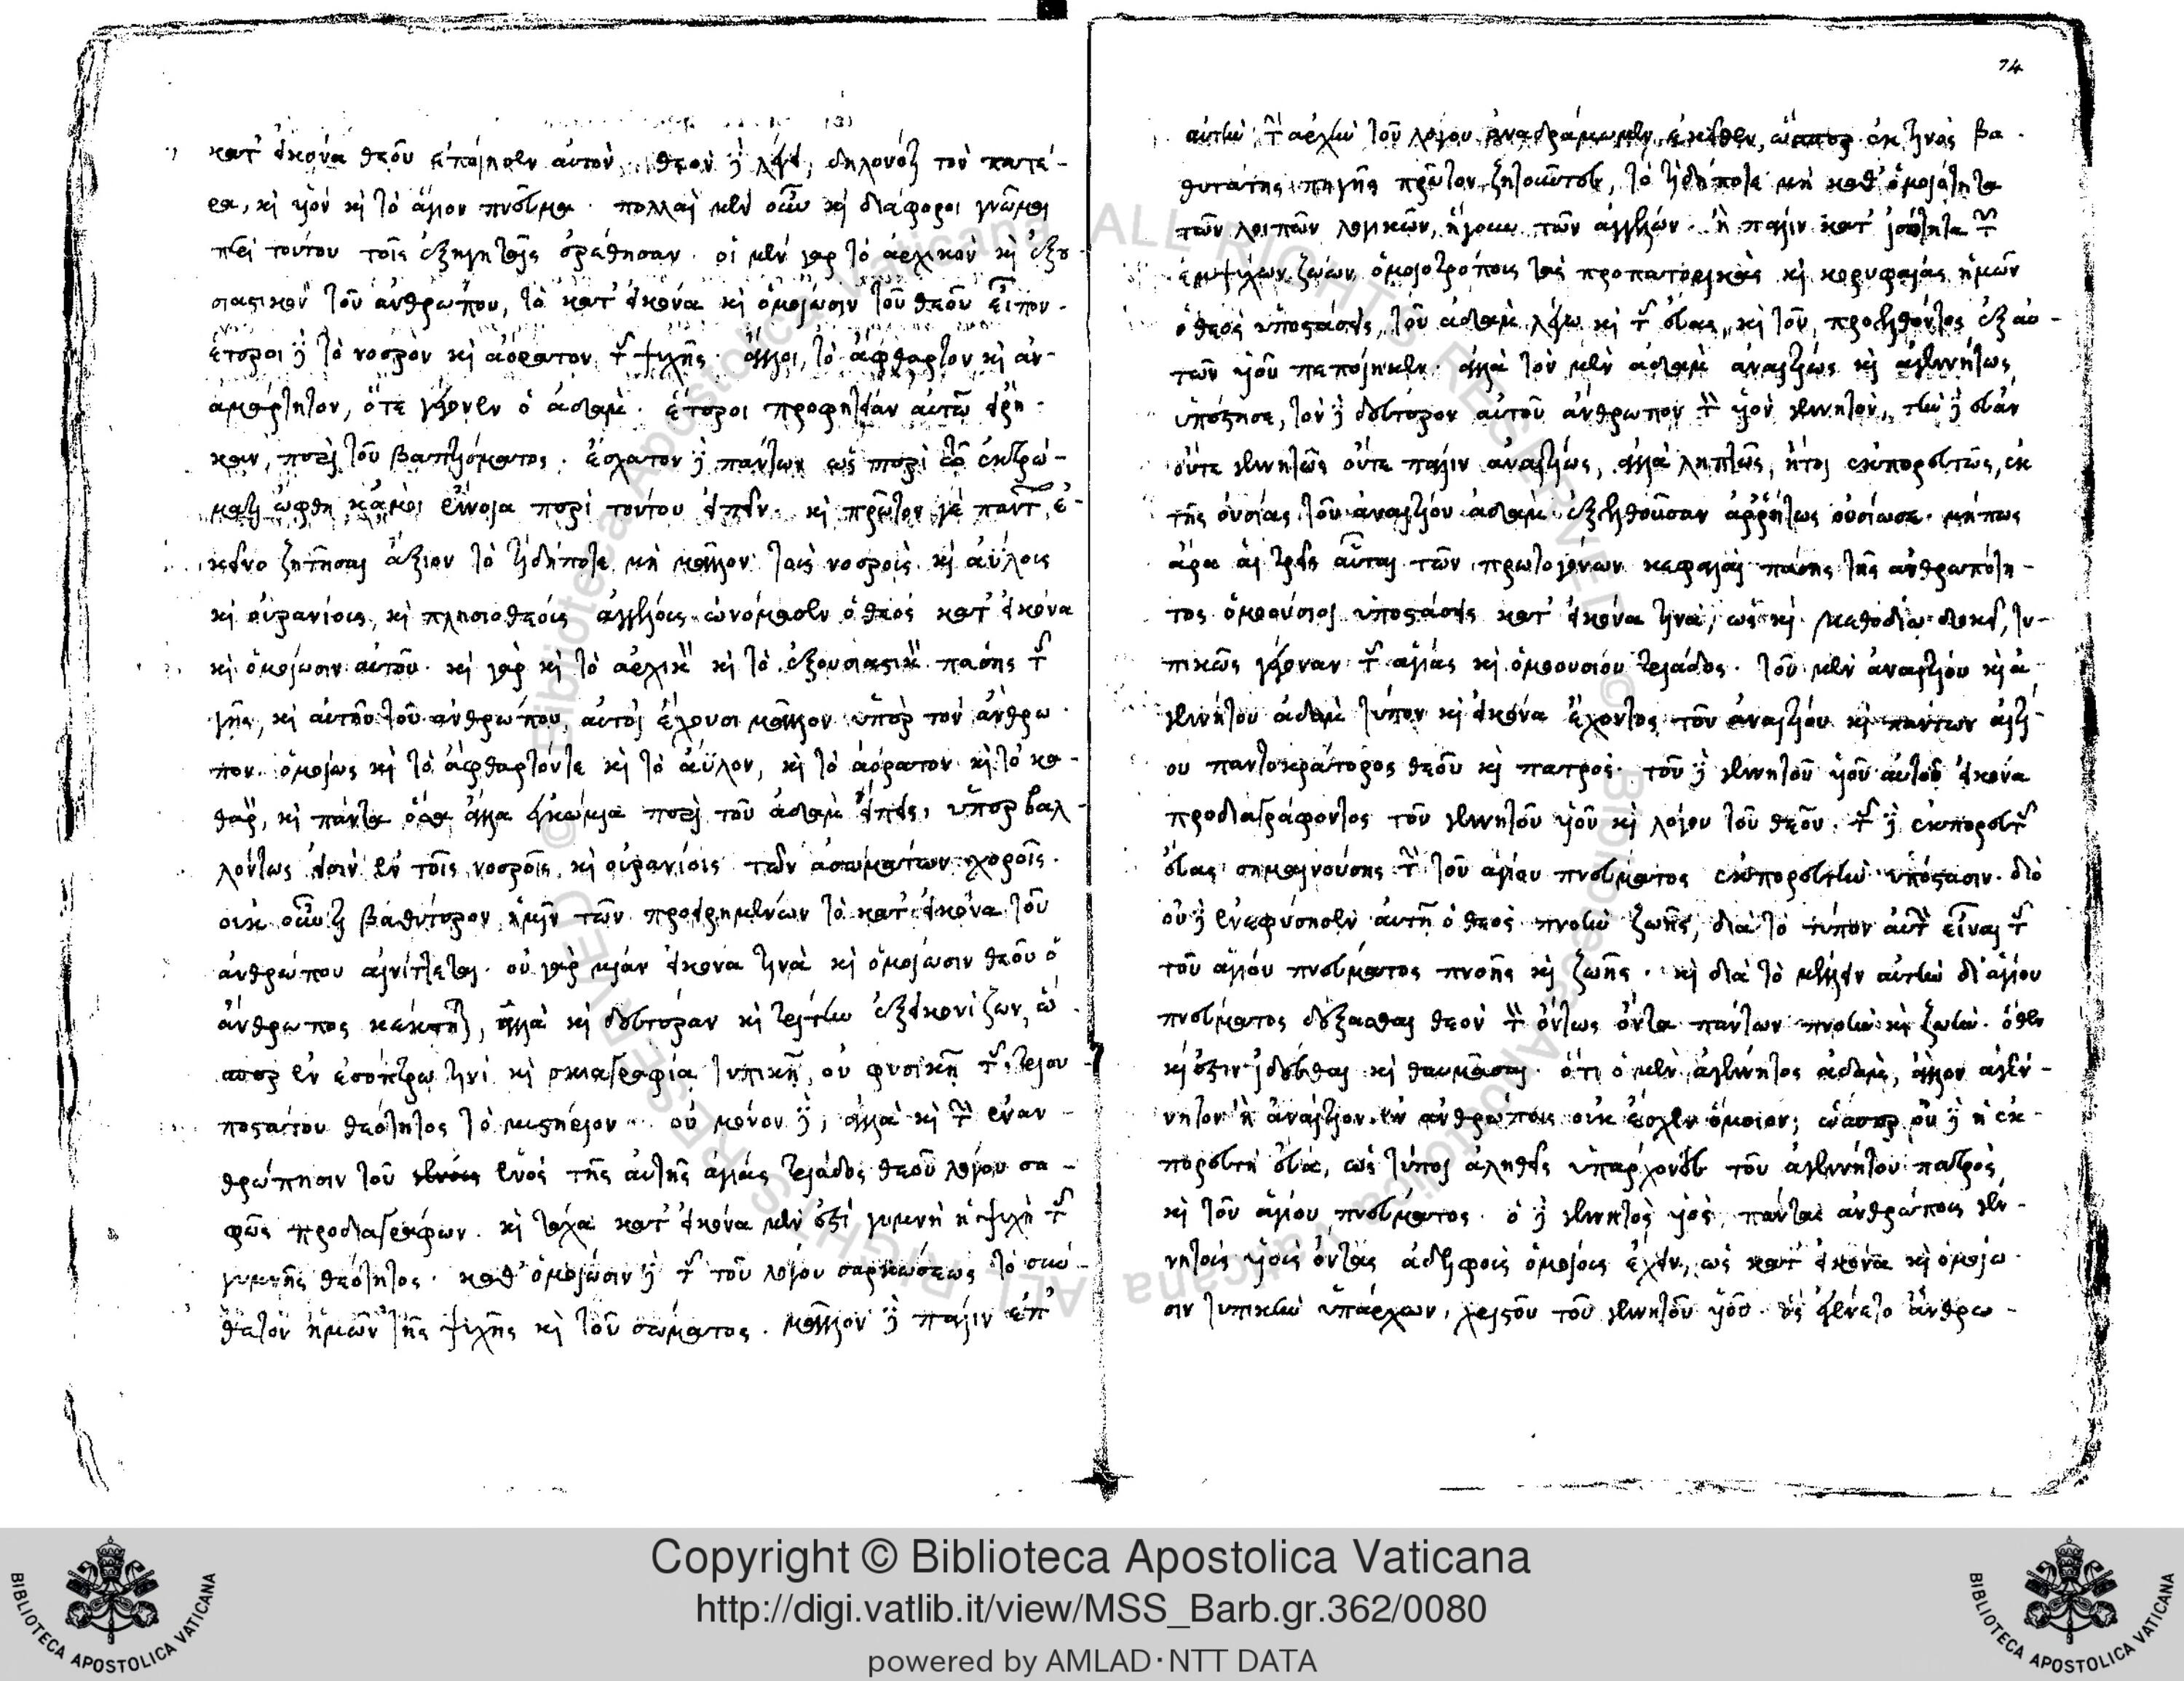 κατ' εἰκόνα θεοῦ ἐποίησεν αὐτόν. θεὸν δὲ λέγει, δηλονότι τὸν πατέ-
ρα, καὶ υἱὸν καὶ τὸ ἅγιον πνεῦμα. πολλαὶ μὲν οὖν καὶ διάφοροι γνῶμαι
περὶ τούτου τοῖς ἐξηγηταῖς εὑρέθησαν. οἱ μὲν γὰρ τὸ ἀρχικὸν καὶ ἐξου-
σιαστικὸν τοῦ ἀνθρώπου, τὸ κατ' εἰκόνα καὶ ὁμοίωσιν τοῦ θεοῦ εἶπον.
ἕτεροι δὲ τὸ νοερὸν καὶ ἀόρατον τῆς ψυχῆς. ἄλλοι, τὸ ἄφθαρτον καὶ ἀν-
αμάρτητον, ὅτε γέγονεν ὁ ἀδάμ. ἕτεροι προφητείαν αὐτὸ εἰρή-
κασι, περὶ τοῦ βαπτίσματος. ἔσχατον δὲ πάντων ὡσπερεὶ τῷ ἐκτρώ-
ματι ὤφθη κἀμοὶ ἔννοια περὶ τούτου εἰπεῖν. καὶ πρῶτον γε πάντων ἐ-
κεῖνο ζητῆσαι ἄξιον τὸ τί δήποτε μὴ μᾶλλον τοὺς νοεροὺς καὶ ἀΰλους
καὶ οὐρανίους, καὶ πλησιοθέους ἀγγέλους ὠνόμασεν ὁ θεὸς κατ' εἰκόνα
καὶ ὁμοίωσιν αὐτοῦ. καὶ γὰρ καὶ τὸ ἀρχικὸν καὶ τὸ ἐξουσιαστικὸν πάσης τῆς
γῆς, καὶ αὐτοῦ τοῦ ἀνθρώπου, αὐτοὶ ἔχουσι μᾶλλον ὑπὲρ τὸν ἄνθρω-
πον. ὁμοίως καὶ τὸ ἄφθαρτόν τε καὶ τὸ ἄϋλον, καὶ τὸ ἀόρατον καὶ τὸ κα-
θαρόν, καὶ πάντα ὅσα ἄλλα ἐγκώμια περὶ τοῦ ἀδὰμ εἴποις, ὑπερβαλ-
λόντως εἰσὶν ἐν τοῖς νοεροῖς, καὶ οὐρανίοις τῶν ἀσωμάτων χοροῖς.
οὐκ οὖν τι βαθύτερον ἡμῖν τῶν προειρημένων τὸ κατ' εἰκόνα τοῦ
ἀνθρώπου αἰνίττεται. οὐ γὰρ μίαν εἰκόνα τινὰ καὶ ὁμοίωσιν θεοῦ ὁ
ἄνθρωπος κέκτηται, ἀλλὰ καὶ δευτέραν καὶ τρίτην ἐξεικονίζων, ὥ-
σπερ ἐν ἐσόπτρῳ τινὶ καὶ σκιαγραφίᾳ τυπικῇ, οὐ φυσικῇ τῆς τρισυ-
ποστάτου θεότητος τὸ μυστήριον. οὐ μόνον δὲ, ἀλλὰ καὶ τὴν ἐναν-
θρώπησιν τοῦ ἑνὸς τῆς αὐτῆς ἁγίας τριάδος θεοῦ λόγου σα-
φῶς προδιαγράφων. καὶ τάχα κατ' εἰκόνα μὲν ἐστὶ γυμνὴ ἡ ψυχὴ τῆς
γυμνῆς θεότητος. καθ' ὁμοίωσιν δὲ τῆς τοῦ λόγου σαρκώσεως τὸ σύν-
θετον ἡμῶν τῆς ψυχῆς καὶ τοῦ σώματος. μᾶλλον δὲ πάλιν ἐπ'
74
αὐτὴν τὴν ἀρχὴν τοῦ λόγου ἀναδράμωμεν ἐκεῖθεν, ὥσπερ ἐκ τινὸς βα-
θυτάτης πηγῆς πρῶτον ζητοῦντες, τὸ τί δήποτε μὴ καθ' ὁμοιότητα
τῶν λοιπῶν λογικῶν, ἤγουν τῶν ἀγγέλων. ἢ πάλιν κατ' ἰσότητα τῶν
ἐμψύχων ζώων ὁμοιοτρόπους τὰς προπατορικὰς καὶ κορυφαίας ἡμῶν
ὁ θεὸς ὑποστάσεις, τοῦ ἀδὰμ λέγω καὶ τῆς εὔας, καὶ τοῦ προελθόντος ἐξ αὐ-
τῶν υἱοῦ πεποίηκεν. ἀλλὰ τὸν μὲν ἀδὰμ ἀναιτίως καὶ ἀγεννήτως
ὑπέστησε, τὸν δὲ δεύτερον αὐτοῦ ἄνθρωπον τὸν υἱὸν γεννητόν, τὴν δὲ εὔαν
οὔτε γεννητῶς οὔτε πάλιν ἀναιτίως, ἀλλὰ ληπτῶς, ἤτοι ἐκπορευτῶς, ἐκ
τῆς οὐσίας τοῦ ἀναιτίου ἀδὰμ ἐξελθοῦσαν ἀρρήτως οὐσίωσε. μήπως
ἄρα αἱ τρεῖς αὗται τῶν πρωτογόνων κεφαλαὶ πάσης τῆς ἀνθρωπότη-
τος ὁμοούσιοι ὑποστάσεις κατ' εἰκόνα τινά, ὡς καὶ μεθοδίῳ δοκεῖ, τυ-
πικῶς γέγοναν τῆς ἁγίας καὶ ὁμοουσίου τριάδος. τοῦ μὲν ἀναιτίου καὶ ἀ-
γεννήτου ἀδὰμ τύπον καὶ εἰκόνα ἔχοντος τοῦ ἀναιτίου καὶ πάντων αἰτί-
ου παντοκράτορος θεοῦ καὶ πατρός. τοῦ δὲ γεννητοῦ υἱοῦ αὐτοῦ εἰκόνα
προδιαγράφοντος τοῦ γεννητοῦ υἱοῦ καὶ λόγου τοῦ θεοῦ. τῆς δὲ ἐκπορευτῆς
εὔας σημαινούσης τὴν τοῦ ἁγίου πνεύματος ἐκπορευτὴν ὑπόστασιν. διὸ
οὐδὲ ἐνεφύσησεν αὐτῇ ὁ θεὸς πνοὴν ζωῆς, διὰ τὸ τύπον αὐτὴν εἶναι τῆς
τοῦ ἁγίου πνεύματος πνοῆς καὶ ζωῆς. καὶ διὰ τὸ μέλλειν αὐτὴν δι' ἁγίου
πνεύματος δέξασθαι θεὸν τὸν ὄντως ὄντα πάντων πνοὴν καὶ ζωήν. ὅθεν
καὶ ἔστιν ἰδέσθαι καὶ θαυμάσαι. ὅτι ὁ μὲν ἀγέννητος ἀδάμ, ἄλλον ἀγέν-
νητον ἢ ἀναίτιον ἐν ἀνθρώποις οὐκ ἔσχεν ὅμοιον, ὥσπερ οὐδὲ ἡ ἐκ-
πορευτὴ εὔα, ὡς τύποι ἀληθεῖς ὑπάρχοντες τοῦ ἀγεννήτου πατρὸς
καὶ τοῦ ἁγίου πνεύματος. ὁ δὲ γεννητὸς υἱός, πάντας ἀνθρώπους γεν-
νητοὺς υἱοὺς ὄντας ἀδελφοὺς ὁμοίους ἔχειν, ὡς κατ' εἰκόνα καὶ ὁμοίω-
σιν τυπικὴν ὑπάρχων, χριστοῦ τοῦ γεννητοῦ υἱοῦ. ὃς ἐγένετο ἄνθρω-
Copyright © Biblioteca Apostolica Vaticana
http://digi.vatlib.it/view/MSS_Barb.gr.362/0080
powered by AMLAD·NTT DATA
BIBLIOTECA APOSTOLICA VATICANA
BIBLIOTECA APOSTOLICA VATICANA